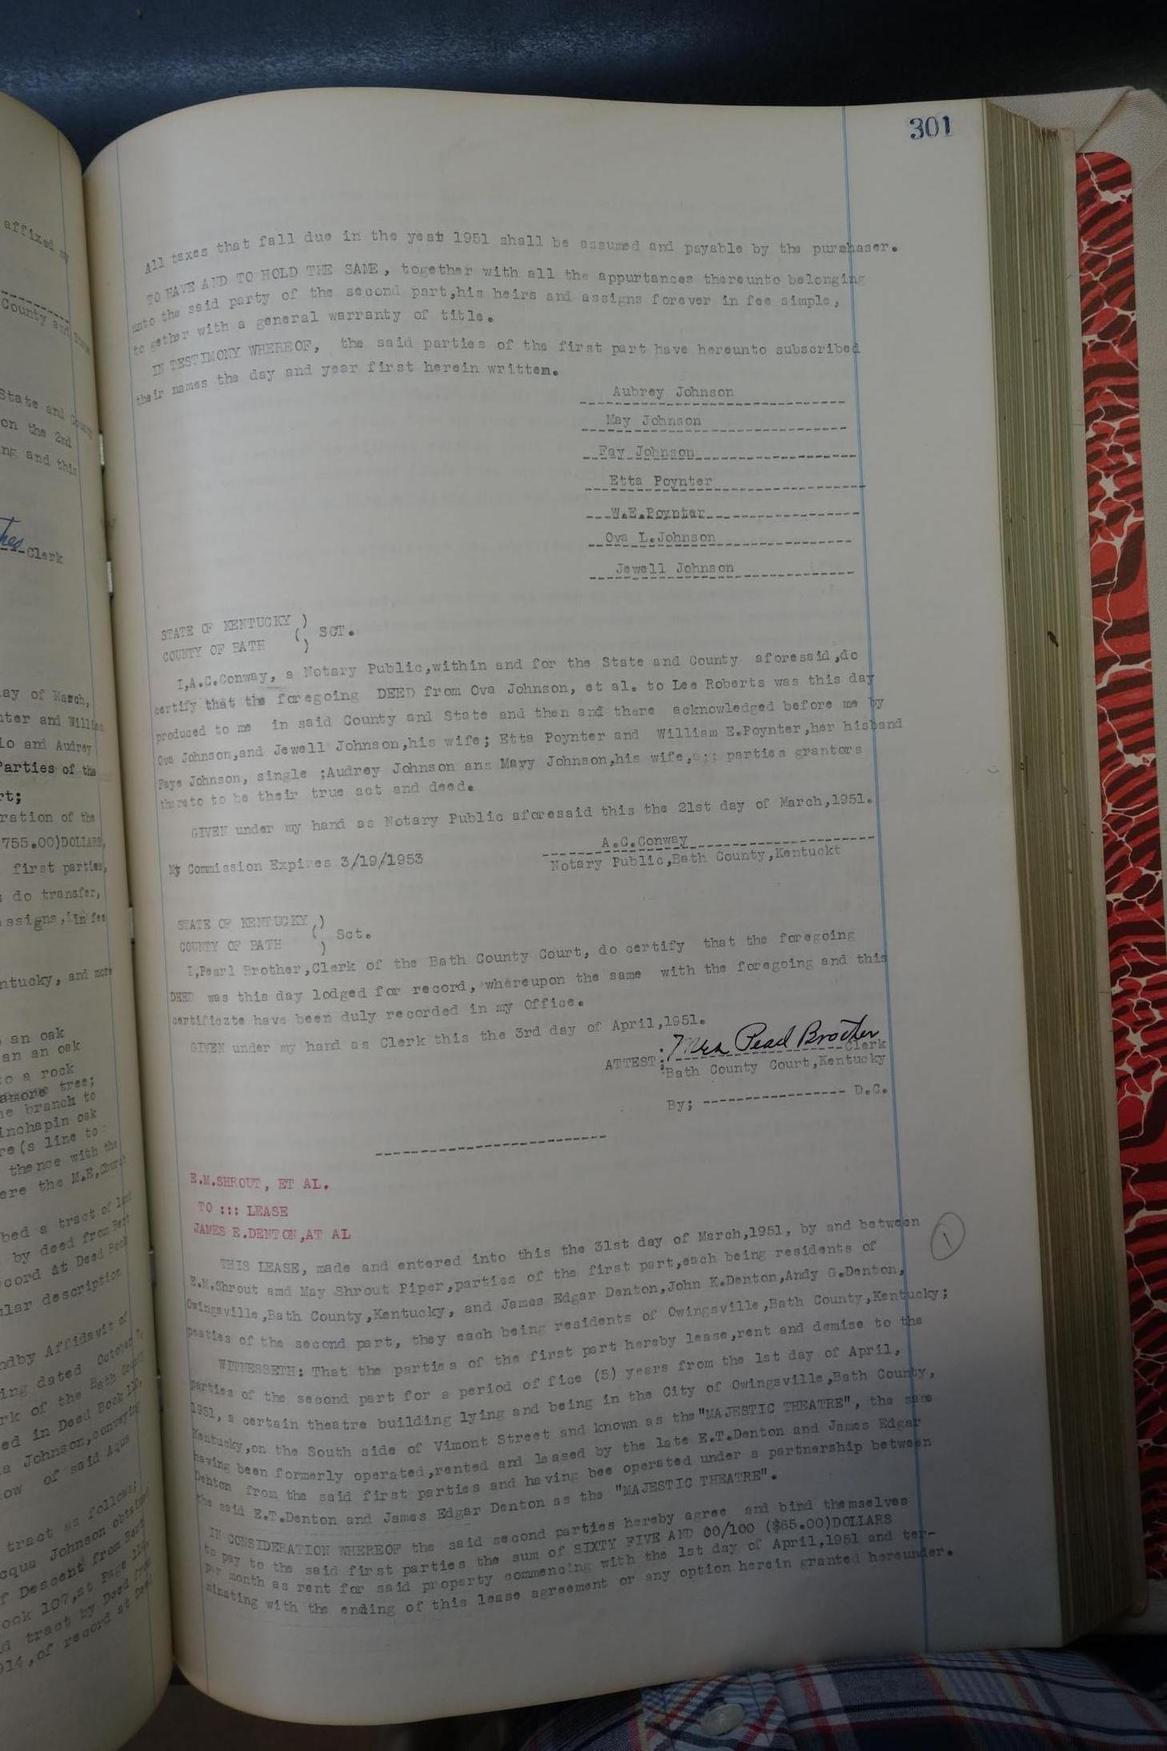 301
affixed my
County and State
State and County
on the 2nd
ng and this
Clerk
ay of March,
nter and Willi
io and Audrey
Parties of the
rt;
ration of the
755.00)DOLLARS,
first parties,
do transfer,
assigns, In fee
ntucky, and more
an oak
an an oak
to a rock
tree;
ne branch to
inchapin oak
re(s line to
thence with the
ere the M.E.Church
bed a tract of land
by deed from
cord at Deed Book
ular description
ndby Affidavit of
ing dated October
rk of the Bath County
ed in Deed Book
a Johnson,conveying
ow of said Aqua
tract as follows;
cqua Johnson obtained
f Descent from
ook 107,at Page
d tract by Deed from
914,of record at Deed
All taxes that fall due in the year 1951 shall be assumed and payable by the purchaser.
TO HAVE AND TO HOLD THE SAME, together with all the appurtances thereunto belonging
unto the said party of the second part,his heirs and assigns forever in fee simple,
to gether with a general warranty of title.
IN TESTIMONY WHEREOF, the said parties of the first part have hereunto subscribed
their names the day and year first herein written.
Aubrey Johnson
May Johnson
Fay Johnson
Etta Poynter
W.E.Poynter
Ova L.Johnson
Jewell Johnson
STATE OF KENTUCKY )
( SCT.
COUNTY OF BATH )
I,A.C.Conway, a Notary Public,within and for the State and County aforesaid,do
certify that the foregoing DEED from Ova Johnson, et al. to Lee Roberts was this day
produced to me in said County and State and then and there acknowledged before me by
Ova Johnson,and Jewell Johnson,his wife; Etta Poynter and William E.Poynter,her hisband
Faye Johnson, single ;Audrey Johnson ans Mavy Johnson,his wife, parties grantors
thereto to be their true act and deed.
GIVEN under my hand as Notary Public aforesaid this the 21st day of March,1951.
A.C.Conway
My Commission Expires 3/19/1953 Notary Public,Bath County,Kentuckt
STATE OF KENTUCKY )
( Sct.
COUNTY OF BATH )
I,Pearl Brother,Clerk of the Bath County Court, do certify that the foregoing
DEED was this day lodged for record, whereupon the same with the foregoing and this
certificzte have been duly recorded in my Office.
GIVEN under my hand as Clerk this the 3rd day of April,1951.
ATTEST: Mrs Pearl Brother Clerk
Bath County Court,Kentucky
By; ---------------- D.C.
E.M.SHROUT, ET AL.
TO ::: LEASE
JAMES E.DENTON,AT AL
1
THIS LEASE, made and entered into this the 31st day of March,1951, by and between
E.M.Shrout amd May Shrout Piper,parties of the first part,each being residents of
Owingsville,Bath County,Kentucky, and James Edgar Denton,John K.Denton,Andy G.Denton,
peaties of the second part, they each being residents of Owingsville,Bath County,Kentucky;
WITNESSETH: That the parties of the first part hereby lease,rent and demise to the
parties of the second part for a period of fice (5) years from the 1st day of April,
1951, a certain theatre building lying and being in the City of Owingsville,Bath County,
Kentucky,on the South side of Vimont Street and known as the"MAJESTIC THEATRE", the same
having been formerly operated,rented and leased by the late E.T.Denton and James Edgar
Denton from the said first parties and having bee operated under a partnership between
the said E.T.Denton and James Edgar Denton as the "MAJESTIC THEATRE".
IN CONSIDERATION WHEREOF the said second parties hereby agree and bind themselves
to pay to the said first parties the sum of SIXTY FIVE AND 00/100 ($65.00)DOLLARS
per month as rent for said property commencing with the 1st day of April,1951 and ter-
minating with the ending of this lease agreement or any option herein granted hereunder.